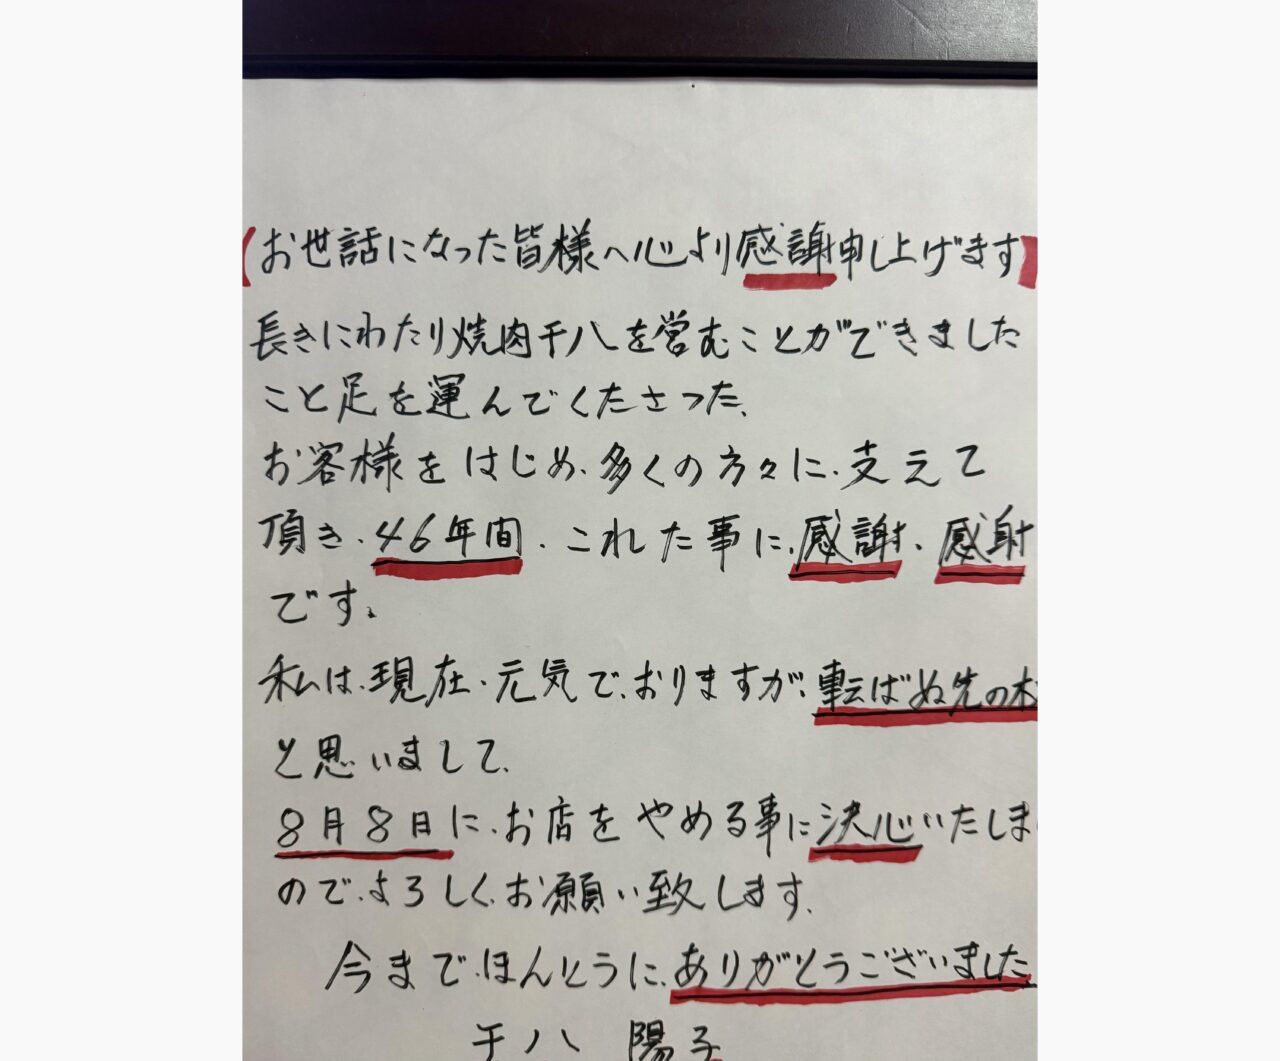 お世話になった皆様へ心より感謝申し上げます
長きにわたり焼肉千八を営むことができました
こと足を運んでくたさった、
お客様をはじめ、多くの方々に、支えて
頂き、46年間、これた事に、感謝、感謝
です。
私は、現在、元気で、おりますが、転ばぬ先の杖
と思いまして、
8月8日に、お店をやめる事に決心いたしま
ので、よろしく、お願い致します。
今まで、ほんとうに、ありがとうございました、
千八 陽子